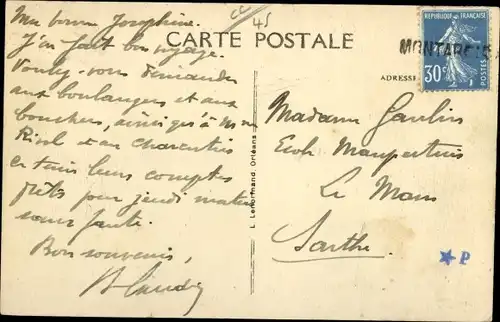 Ma bonne Joséphine.
J'ai fait bon voyage.
Voulez-vous demander
aux boulangers et aux
bouchers, ainsi qu'à
et au
tenir leurs comptes
prêts pour jeudi matin
sans faute.
Bon souvenir,
45
CARTE POSTALE
RÉPUBLIQUE FRANÇAISE
30c
POSTES
MONTARGIS
ADRESSE
L. Lenormand, Orléans
Madame Gaulin
École Maupertuis
Le Mans
Sarthe.
★P